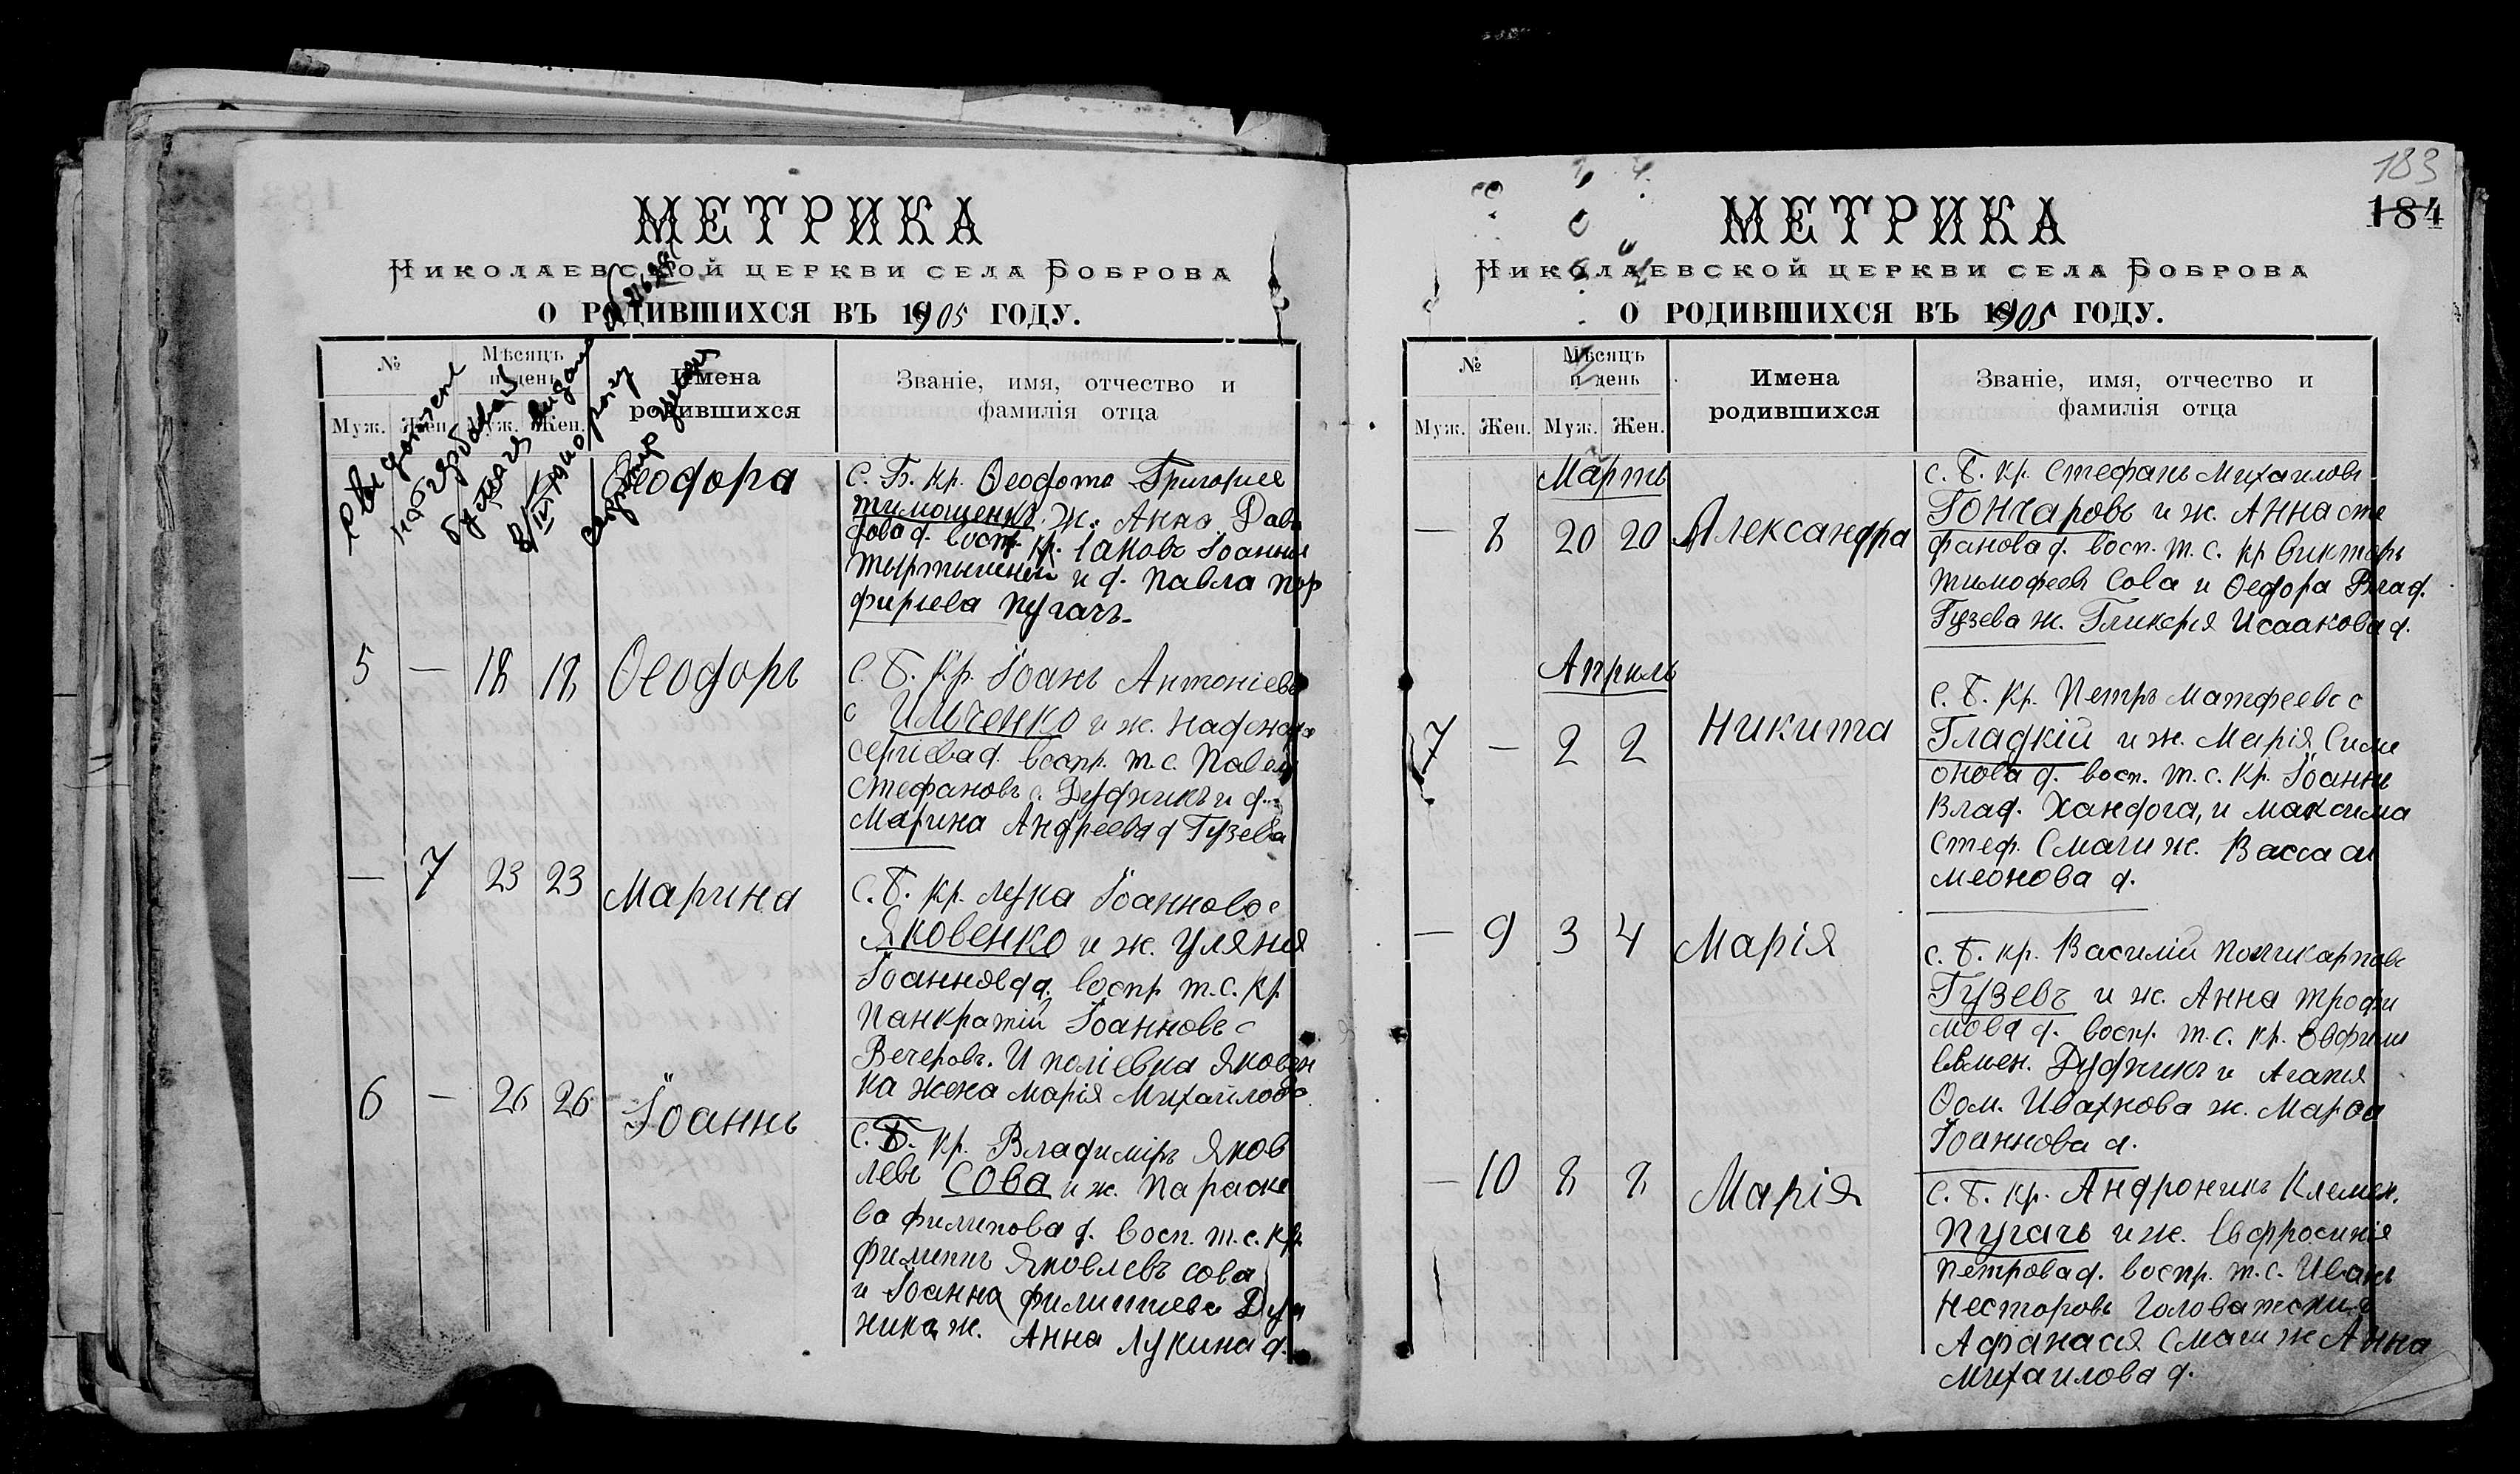 МЕТРИКА
Николаевской церкви села Боброва
О РОДИВШИХСЯ ВЪ 1905 ГОДУ.
№
Мѣсяцъ
и день
Имена
родившихся
Званіе, имя, отчество и
фамилія отца
Муж. Жен. Муж. Жен.
Ѳеодора
С. Б. Кр. Ѳеодота Григорие
Тимошенко. Ж. Анна Дави
дова д. восп. кр. Іаковъ Іоанн
и д. Павла Пор
фириева Пугачъ.
5 — 18 18 Ѳеодоръ
С. Б. Кр. Іоанъ Антоніевъ
с Ильченко и ж. Надежда
Сергіева д. воспр. т. с. Павелъ
Стефановъ с. Дудникъ и д.
Марина Андреева д Гузева
— 7 23 23 Марина
С. Б. Кр. Лука Іоанновъ с
Яковенко и ж. Уляния
Іоаннова д. воспр т. с. Кр
Панкратій Іоанновъ с
Вечеровъ. И Яковен
ка жена Марія Михайлова
6 — 26 26 Іоаннъ
С. Б. Кр. Владиміръ Яков
левъ Сова и ж. Параске
ва Филипова д. восп. т. с. Кр.
Филиппъ Яковлевъ Сова
и Іоанна Филиппиева Дуд
ника ж. Анна Лукина д.
183
184
МЕТРИКА
Николаевской церкви села Боброва
О РОДИВШИХСЯ ВЪ 1905 ГОДУ.
№
Мѣсяцъ
и день
Имена
родившихся
Званіе, имя, отчество и
фамилія отца
Муж. Жен. Муж. Жен.
Мартъ
— 8 20 20 Александра
С. Б. Кр. Стефанъ Михаиловъ
Гончаровъ и ж. Анна Сте
фанова д. восп. т. с. кр Викторъ
Тимофеевъ Сова и Ѳедора Влад.
Гузева ж. Гликерія Исаакова д.
Апрѣль
7 — 2 2 Никита
С. Б. Кр. Петръ Матфеевъ с
Гладкій и ж. Марія Сими
онова д. восп. т. с. Кр. Іоаннъ
Влад. Хандога, и Максима
Стеф. Смаги ж. Васса Си
меонова д.
— 9 3 4 Марія
С. Б. Кр. Василій Поликарповъ
Гузевъ и ж. Анна Трофи
мова д. воспр. т. с. кр. Евфими
Евмен. Дудникъ и Агапія
Ѳом. Ивахнова ж. Марфа
Іоаннова д.
— 10 8 8 Марія
С. Б. Кр. Андроникъ Клемен.
Пугачъ и ж. Евфросинія
Петрова д. воспр. т. с. Иванъ
Несторовъ Головатский
Афанасія Смаги ж Анна
Михаилова д.